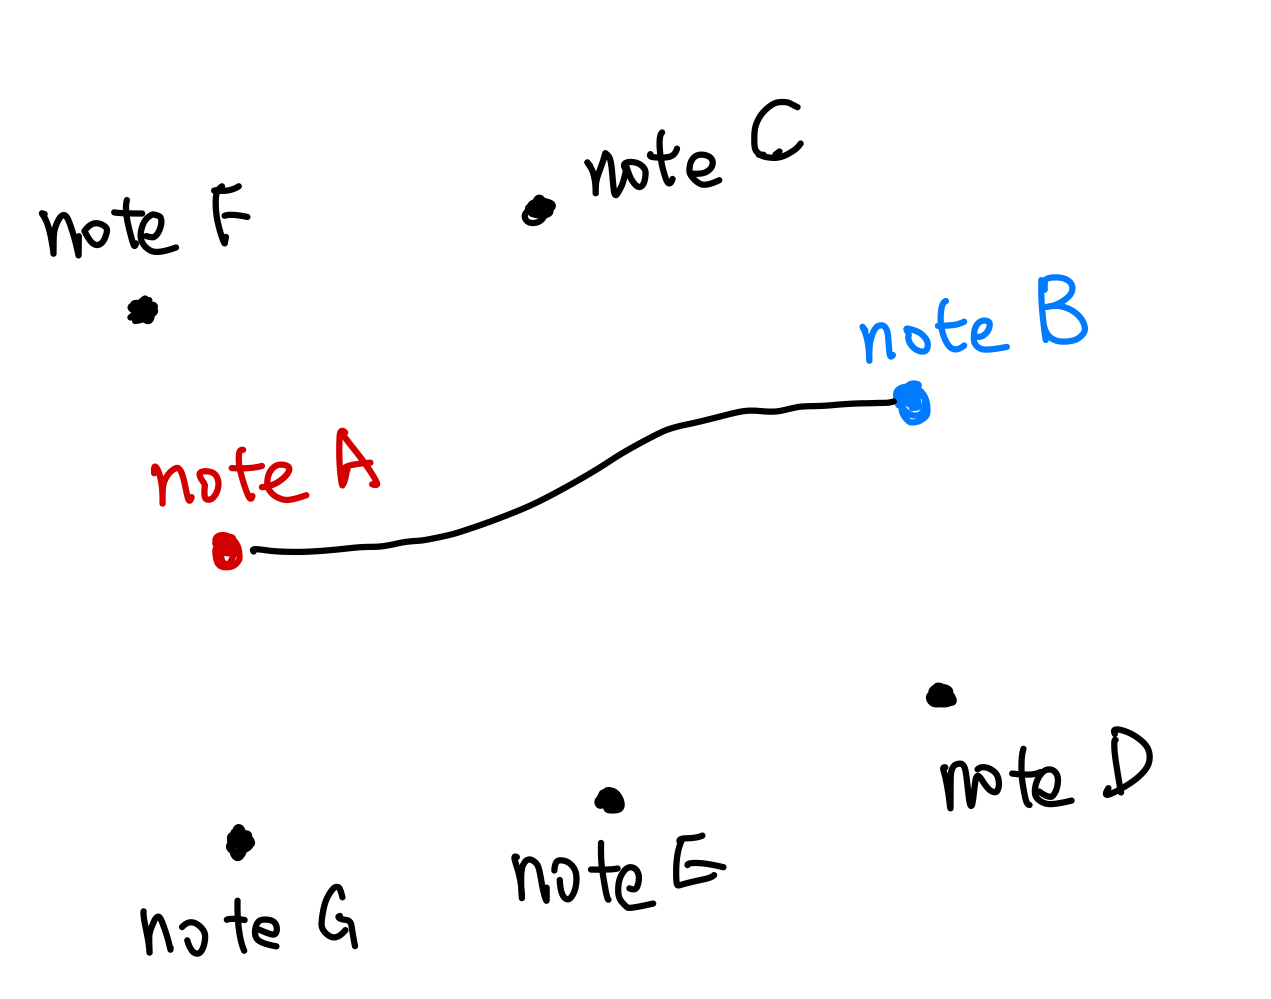 note C
note F
note B
note A
note D
note E
note G